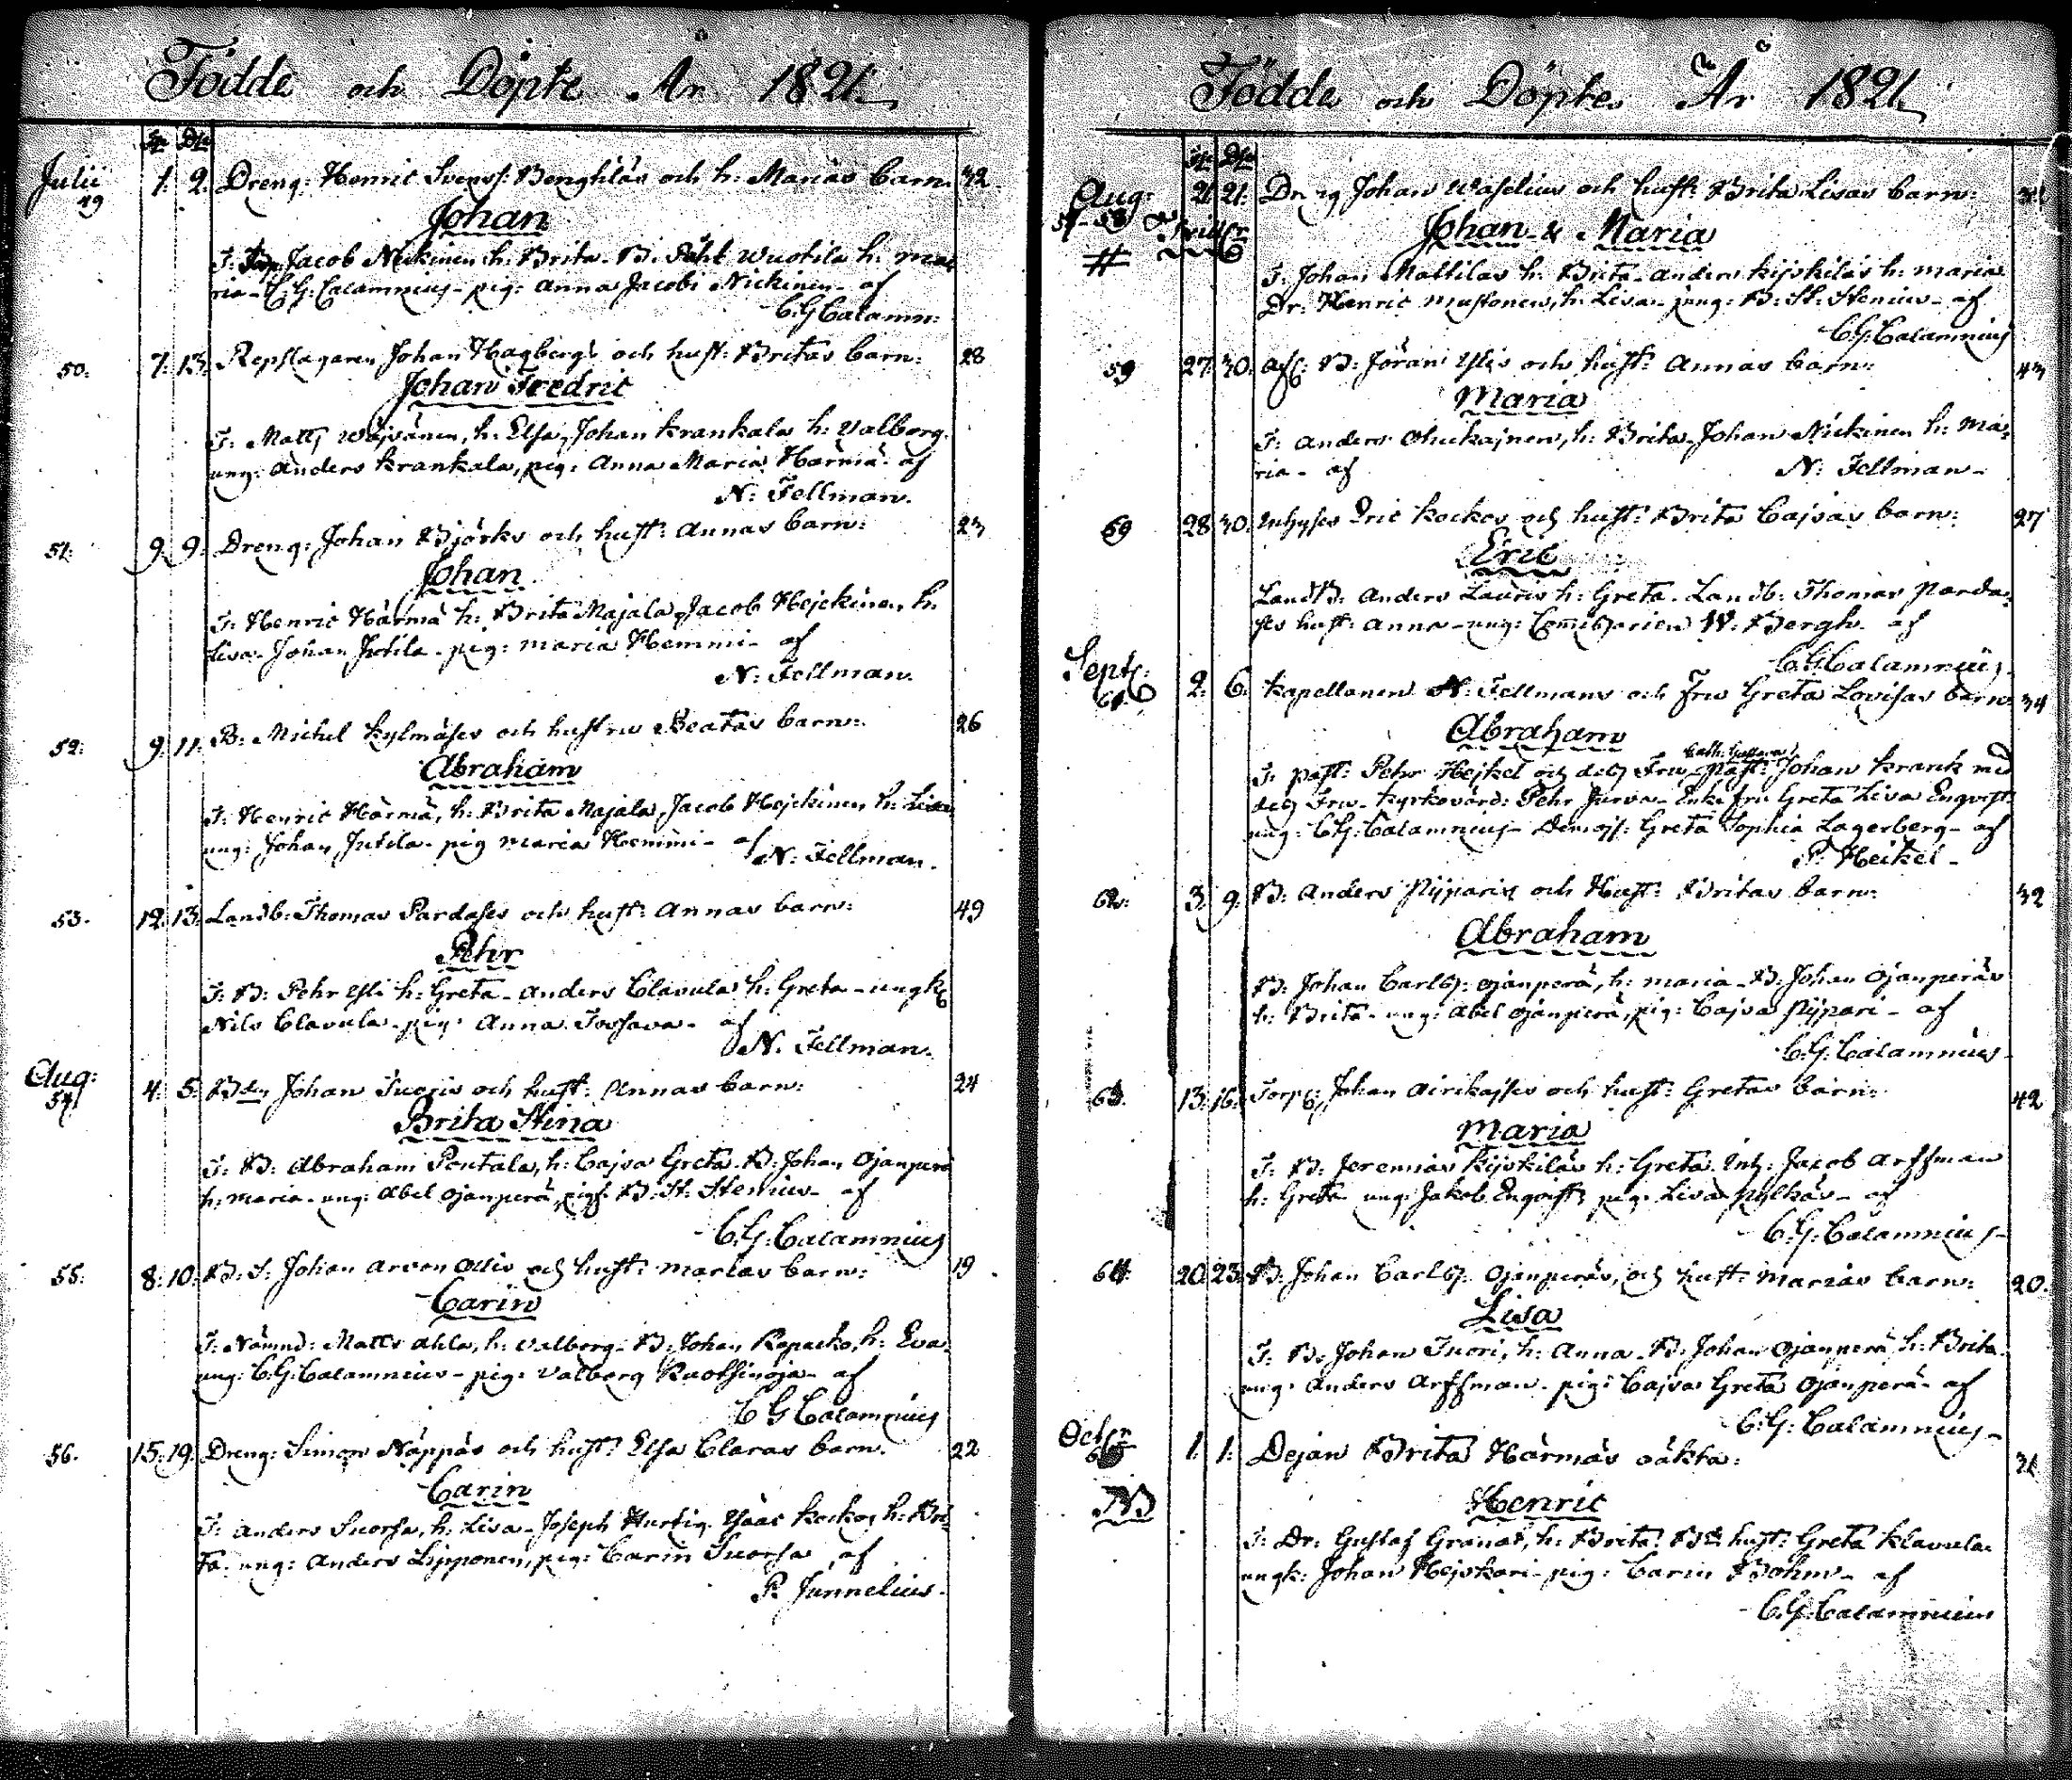 Födde och Döpte År 1821
Julii 1. 2. Dreng: Henric Svenss: Benghtäs och h: Marias barn. 32
49
Johan
T: Jacob Nickinen h: Brita. B: Wuotila h: Ma
ria C:G: Calamnius pig: Anna Jacobi Nickinen af
C.G Calamn:
50. 7. 13. Repslagaren Johan Hagbergs och hust: Britas barn: 28
Johan Fredric
T: Matts Wäjsänen, h: Elsa, Johan Krankala h: Valborg.
ung: Anders Krankala, pig: Anna Maria Härmä af
N: Fellman.
51. 9. 9. Dreng: Johan Björks och hust: Annas barn: 23
Johan
T: Henric Härmä h: Brita Majala, Jacob Hejckinen, h:
Lisa. Johan Jutila. pig: Maria Hemmi af
N: Fellman.
52: 9. 11. B: Michel Kylmäses och hustru Beatas barn: 26
Abraham
T: Henric Härmä, h: Brita Majala, Jacob Hejckinen h: Lisa
ung: Johan Jutila. pig Maria Hemmi af
N: Fellman.
53. 12. 13. Landb: Thomas Pardases och hust: Annas barn: 49
Pehr
T: B: Pehr Ylli h: Greta Anders Clavula h: Greta ungk:
Nils Clavula pig: Anna af
N. Fellman.
Aug: 4. 5. Johan Suoris och hust: Annas barn: 24
54
Brita Stina
T: B: Abraham Pentala, h: Cajsa Greta. B: Johan Ojanperä
h: Maria ung: Abel Ojanperä, pig: B: St: Stenius af
C.G: Calamnius
55. 8: 10. B: S: Johan Arvon Ollis och hust: Marias barn: 19
Carin
T: Nämnd: Matts Ahla, h: Valborg B: Johan Kopacko, h: Eva
ung: C.G: Calamnius pig: Valborg Ruotsinoja af
C G Calamnius
56. 15. 19. Dreng: Simon Näppäs och hust: Elsa Claras barn. 22
Carin
T: Anders Suorsa, h: Lisa Joseph Hurtig. Isaac Kockos h: Bri
ta. ung: Anders Lipponen, pig: Carin Suorsa af
P. Junnelius.
Födde och Döpte År 1821
Aug: 21. 21. Dreng Johan Waselius och hust: Brita Lisas barn:
57-58
#
Johan & Maria
T: Johan Mattilas h: Brita Anders Kijskiläs h: Maria
Dr: Henric Mustonen, h: Lisa jung: B: St: Stenius af
C.G. Calamnius
59 27. 30. B: Jöran Yllis och hust: Annas barn: 43
Maria
T: Anders Ohukajnen, h: Brita Johan Nickinen h: Ma
ria af
N: Fellman
59 28 30. Inhyses Eric Kockos och hust: Brita Cajsas barn: 27
Eric
LandB: Anders Lauris h: Greta. Landb: Thomas Parda
ses hust: Anna ung: W: Bergh. af
C.G. Calamnius
Sept: 2. 6. Kapellanen N: Fellmans och Fru Greta Lovisas barn: 34
61.
Abraham
Cath: Gustava
T: Past: Pehr Hejkel och dess Fru Past: Johan Krank med
dess Fru Kyrkovärd: Pehr Jurva Enke fru Greta Lisa Enqvist
ung: C:G: Calamnius Demois: Greta Sophia Lagerberg af
P: Heikel
62: 3. 9. B: Anders Pijparis och Hust: Britas barn: 32
Abraham
B: Johan Carls: Ojanperä, h: Maria B: Johan Ojanperäs
h: Brita ung: Abel Ojanperä, pig: Cajsa Pijpari af
C.G: Calamnius
63. 13. 16. Torp: Johan Airikajses och hust: Gretas barn: 42
Maria
T: B: Jeremias Kijskiläs h: Greta. Inh: Jacob Arffman
h: Greta ung: Jakob Enqvist pig: Lisa Pylkäs af
C.G: Calamnius
64. 20. 23. B: Johan Carls: Ojanperäs, och hust: Marias barn: 20.
Lisa
T: B: Johan Suori, h: Anna B: Johan Ojanperä h: Brita
ung: Anders Arffman. pig: Cajsa Greta Ojanperä af
C.G: Calamnius
Octbr 1. 1. Pejan Brita Härmäs oäkta:
65
Henric
T: Dr: Gustaf Granat, h: Brita. hust: Greta Klavula
ungk: Johan Hejskari pig: Carin Böhm af
C.G: Calamnius